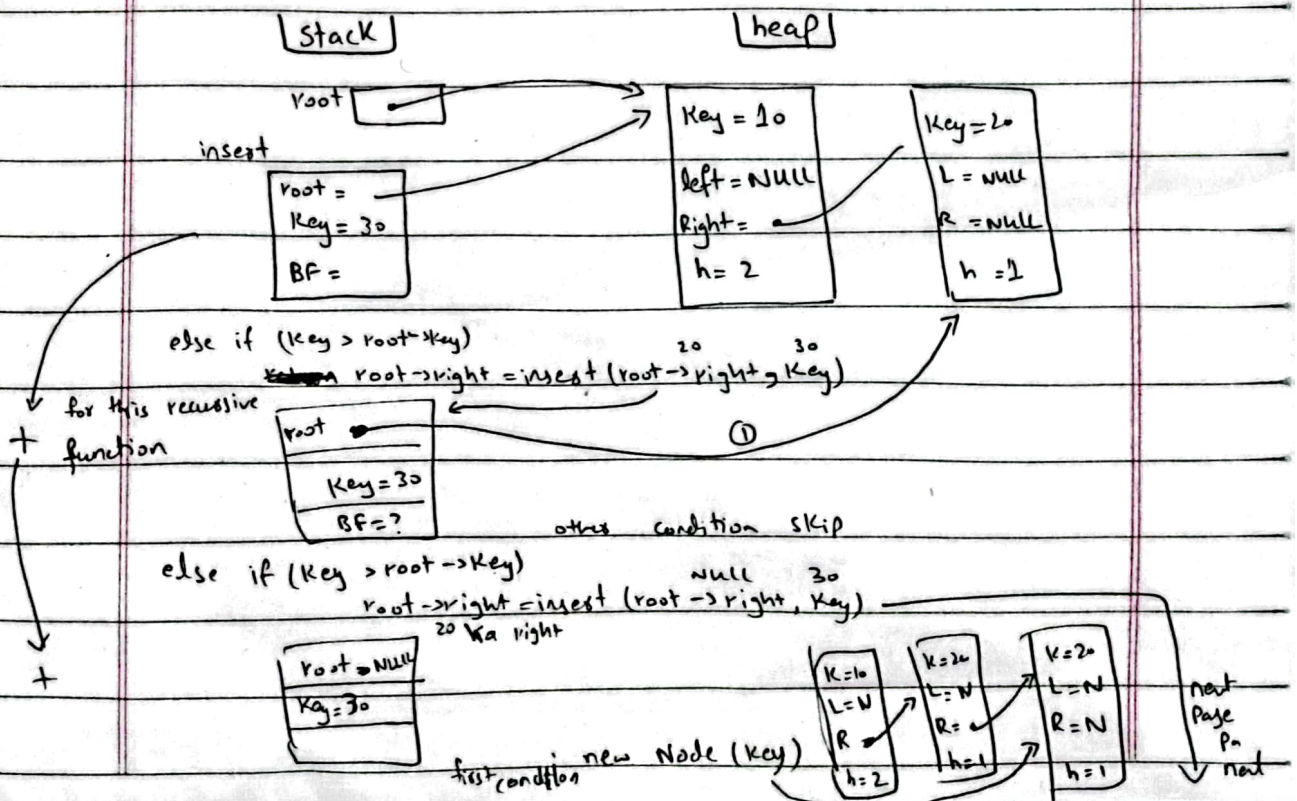 Stack
heap
root
insert
root =
Key = 30
BF =
Key = 10
left = NULL
Right =
h = 2
Key = 20
L = NULL
R = NULL
h = 1
else if (Key > root->Key)
20 30
root->right = insert (root->right, Key)
for this recussive
function
+
root
Key = 30
BF = ?
①
other condition skip
else if (Key > root->Key)
NULL 30
root->right = insert (root->right, Key)
20 ka right
+
root NULL
Key = 30
K=10
L=N
R
h=2
K=20
L=N
R=
h=1
K=20
L=N
R=N
h=1
next
Page
Pa
first condition new Node (Key)